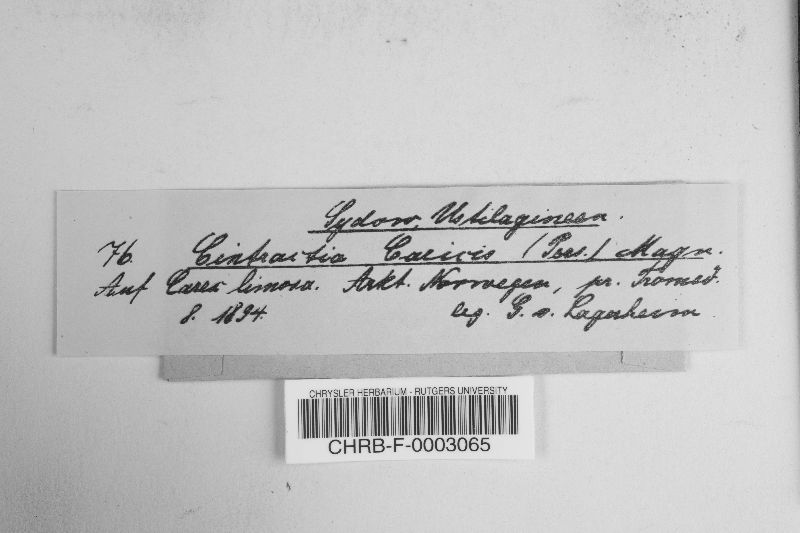 Sydow, Ustilagineen.
76. Cintractia Caricis (Pers.) Magn.
Auf Carex limosa. Arkt. Norwegen, pr. Tromsö.
8. 1894. leg. G. v. Lagerheim
CHRYSLER HERBARIUM - RUTGERS UNIVERSITY
CHRB-F-0003065